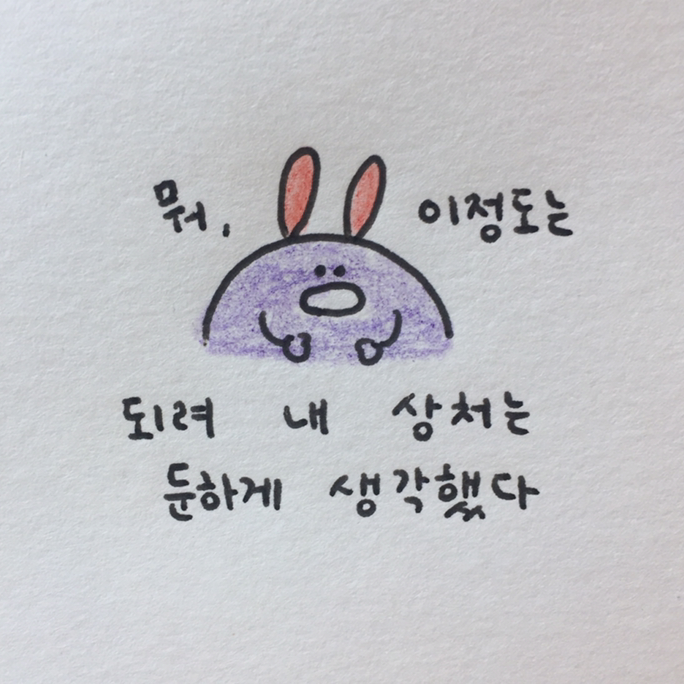 뭐, 이정도는
되려 내 상처는
둔하게 생각했다